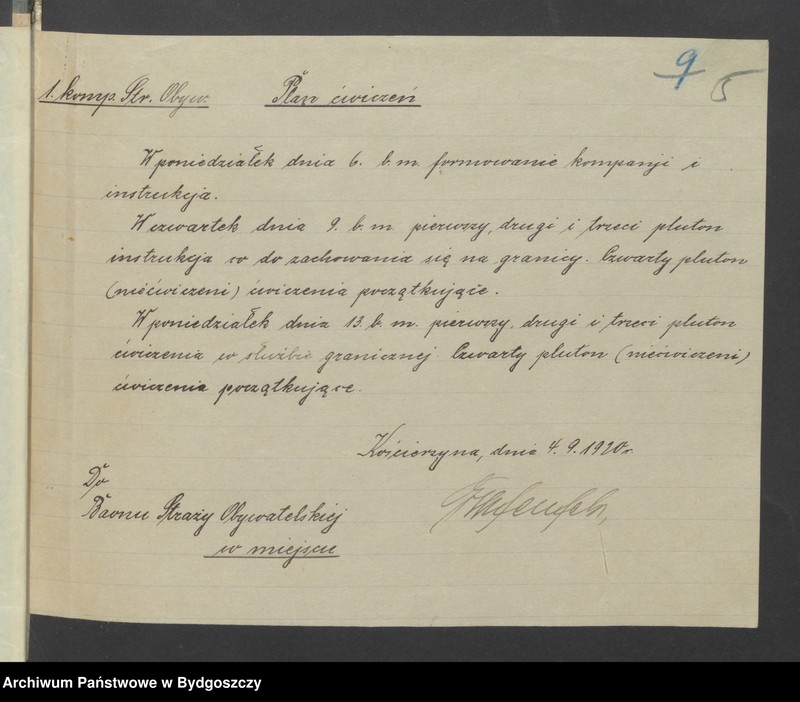 9
5
1. komp. Str. Obyw. Plan ćwiczeń
W poniedziałek dnia 6. b. m. formowanie kompanji i
instrukcja.
W czwartek dnia 9. b. m. pierwszy, drugi i trzeci pluton
instrukcja co do zachowania się na granicy. Czwarty pluton
(niećwiczeni) ćwiczenia początkujące.
W poniedziałek dnia 13. b. m. pierwszy, drugi i trzeci pluton
ćwiczenia w służbie granicznej. Czwarty pluton (niećwiczeni)
ćwiczenia początkujące.
Kościerzyna, dnia 4. 9. 1920 r.
Do
Baonu Straży Obywatelskiej
w miejscu
Archiwum Państwowe w Bydgoszczy